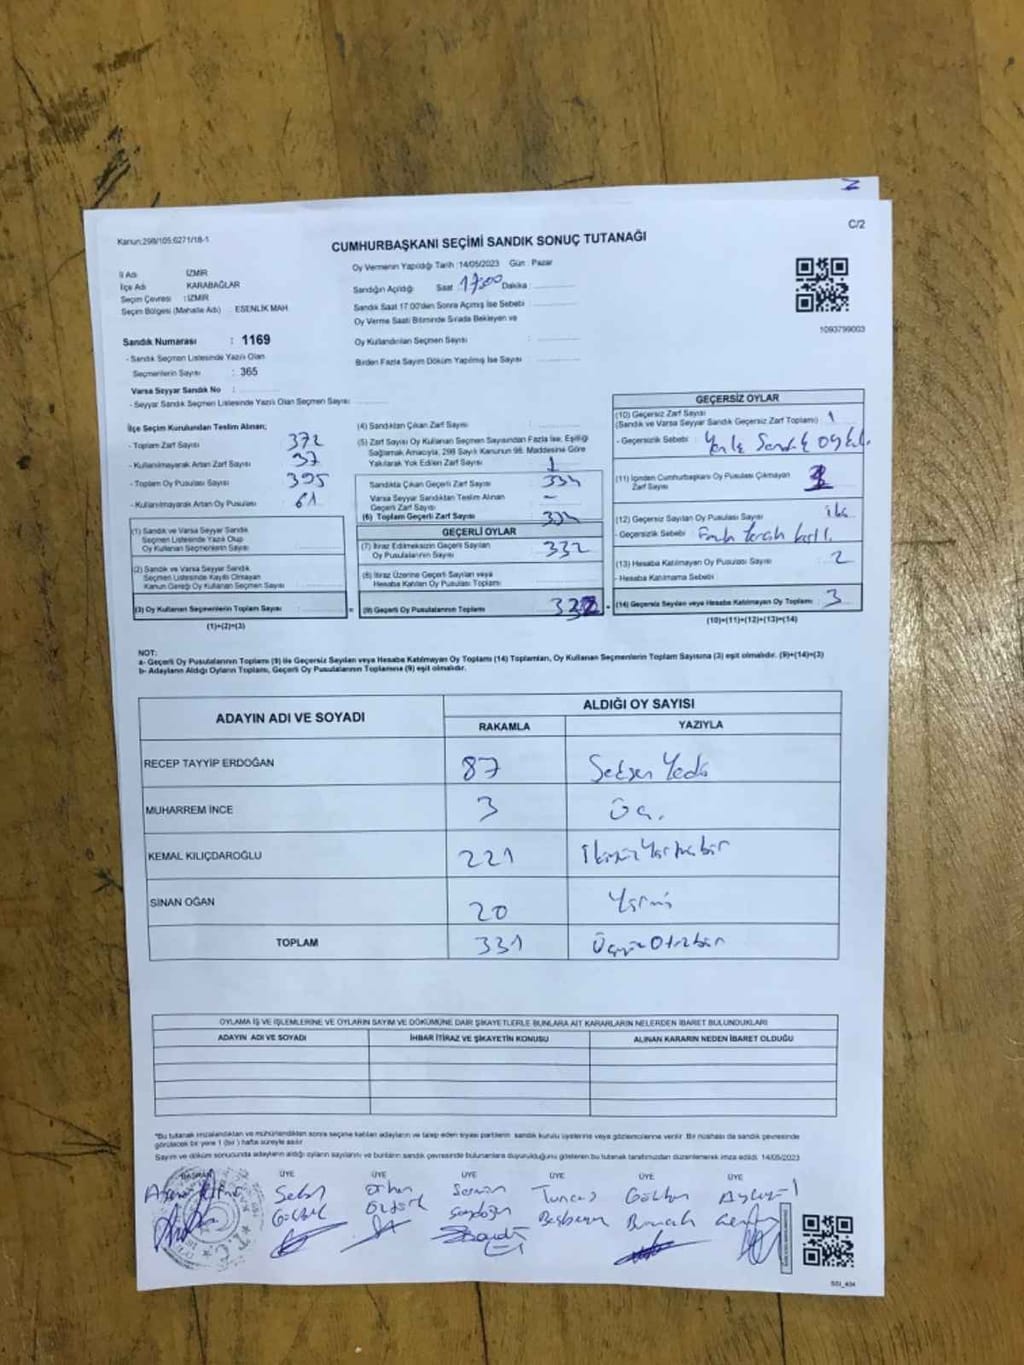 C/2
Kanun:298/105;6271/18-1
CUMHURBAŞKANI SEÇİMİ SANDIK SONUÇ TUTANAĞI
İl Adı İZMİR
İlçe Adı KARABAĞLAR
Seçim Çevresi : İZMİR
Seçim Bölgesi (Mahalle Adı) : ESENLİK MAH
Sandık Numarası : 1169
- Sandık Seçmen Listesinde Yazılı Olan
Seçmenlerin Sayısı : 365
Varsa Seyyar Sandık No :
- Seyyar Sandık Seçmen Listesinde Yazılı Olan Seçmen Sayısı :
Oy Vermenin Yapıldığı Tarih :14/05/2023 Gün : Pazar
Sandığın Açıldığı Saat 17:00 Dakika :
Sandık Saat 17.00'den Sonra Açmış İse Sebebi :
Oy Verme Saati Bitiminde Sırada Bekleyen ve
Oy Kullandırılan Seçmen Sayısı :
Birden Fazla Sayım Döküm Yapılmış İse Sayısı :
1093799003
İlçe Seçim Kurulundan Teslim Alınan;
- Toplam Zarf Sayısı 372
- Kullanılmayarak Artan Zarf Sayısı 37
- Toplam Oy Pusulası Sayısı 395
- Kullanılmayarak Artan Oy Pusulası 61
(1) Sandık ve Varsa Seyyar Sandık
Seçmen Listesinde Yazılı Olup
Oy Kullanan Seçmenlerin Sayısı :
(2) Sandık ve Varsa Seyyar Sandık
Seçmen Listesinde Kayıtlı Olmayan
Kanun Gereği Oy Kullanan Seçmen Sayısı
(3) Oy Kullanan Seçmenlerin Toplam Sayısı : =
(1)+(2)=(3)
(4) Sandıktan Çıkan Zarf Sayısı :
(5) Zarf Sayısı Oy Kullanan Seçmen Sayısından Fazla İse, Eşitliği
Sağlamak Amacıyla, 298 Sayılı Kanunun 98. Maddesine Göre
Yakılarak Yok Edilen Zarf Sayısı 1
Sandıkta Çıkan Geçerli Zarf Sayısı 334
Varsa Seyyar Sandıktan Teslim Alınan
Geçerli Zarf Sayısı –
(6) Toplam Geçerli Zarf Sayısı 334
GEÇERLİ OYLAR
(7) İtiraz Edilmeksizin Geçerli Sayılan
Oy Pusulalarının Sayısı 332
(8) İtiraz Üzerine Geçerli Sayılan veya
Hesaba Katılan Oy Pusulası Toplamı :
(9) Geçerli Oy Pusulalarının Toplamı
GEÇERSİZ OYLAR
(10) Geçersiz Zarf Sayısı
(Sandık ve Varsa Seyyar Sandık Geçersiz Zarf Toplamı) 1
- Geçersizlik Sebebi :
(11) İçinden Cumhurbaşkanı Oy Pusulası Çıkmayan
Zarf Sayısı
(12) Geçersiz Sayılan Oy Pusulası Sayısı iki
- Geçersizlik Sebebi :
(13) Hesaba Katılmayan Oy Pusulası Sayısı 2
- Hesaba Katılmama Sebebi
(14) Geçersiz Sayılan veya Hesaba Katılmayan Oy Toplamı : 3
(10)+(11)+(12)+(13)=(14)
NOT:
a- Geçerli Oy Pusulalarının Toplamı (9) ile Geçersiz Sayılan veya Hesaba Katılmayan Oy Toplamı (14) Toplamları, Oy Kullanan Seçmenlerin Toplam Sayısına (3) eşit olmalıdır. (9)+(14)=(3)
b- Adayların Aldığı Oyların Toplamı, Geçerli Oy Pusulalarının Toplamına (9) eşit olmalıdır.
ADAYIN ADI VE SOYADI ALDIĞI OY SAYISI
RAKAMLA YAZIYLA
RECEP TAYYİP ERDOĞAN 87 Seksen Yedi
MUHARREM İNCE 3 Üç.
KEMAL KILIÇDAROĞLU 221 İkiyüzYirmibir
SİNAN OĞAN 20 Yirmi
TOPLAM 331 ÜçyüzOtuzbir
OYLAMA İŞ VE İŞLEMLERİNE VE OYLARIN SAYIM VE DÖKÜMÜNE DAİR ŞİKAYETLERLE BUNLARA AİT KARARLARIN NELERDEN İBARET BULUNDUKLARI
ADAYIN ADI VE SOYADI İHBAR İTİRAZ VE ŞİKAYETİN KONUSU ALINAN KARARIN NEDEN İBARET OLDUĞU
*Bu tutanak imzalandıktan ve mühürlendikten sonra seçime katılan adayların ve talep eden siyasi partilerin sandık kurulu üyelerine veya gözlemcilerine verilir. Bir nüshası da sandık çevresinde
görülecek bir yere 1 (bir ) hafta süreyle asılır
Sayım ve döküm sonucunda adayların aldığı oyların sayılarını ve bunların sandık çevresinde bulunanlara duyurulduğunu gösteren bu tutanak tarafımızdan düzenlenerek imza edildi. 14/05/2023
BAŞKAN ÜYE ÜYE ÜYE ÜYE ÜYE ÜYE
Orhan Tuncay Gökhan